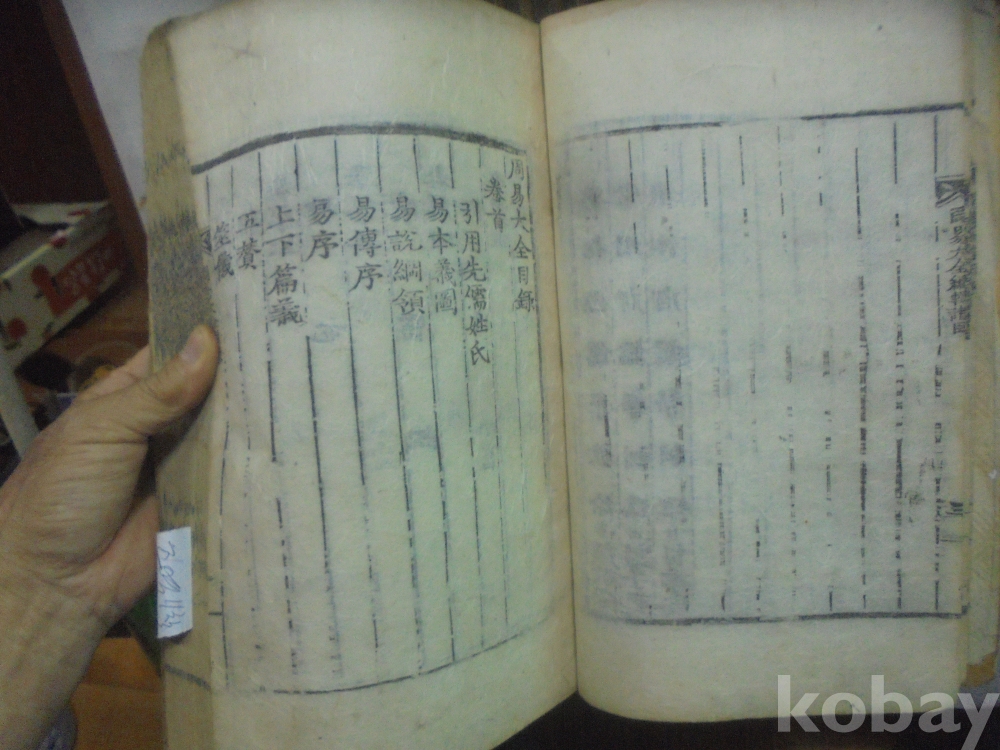 周易大全目録
卷首
引用先儒姓氏
易本義圖
易說綱領
易傳序
易序
上下篇義
五贊
筮儀
三
kobay